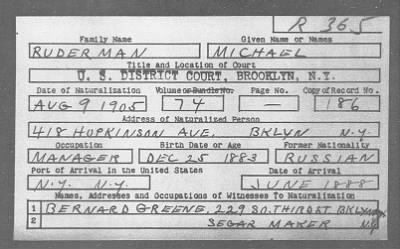 R 365
Family Name Given Name or Names
RUDERMAN MICHAEL
Title and Location of Court
U. S. DISTRICT COURT, BROOKLYN, N.Y.
Date of Naturalization Volume or Bundle No. Page No. Copy of Record No.
AUG 9 1905 74 — 186
Address of Naturalized Person
418 HOPKINSON AVE. BKLYN N.Y.
Occupation Birth Date or Age Former Nationality
MANAGER DEC 25 1883 RUSSIAN
Port of Arrival in the United States Date of Arrival
N.Y. N.Y. JUNE 1888
Names, Addresses and Occupations of Witnesses To Naturalization
1 BERNARD GREENE, 229 SO. THIRD ST BKLYN
2 SEGAR MAKER N.Y.